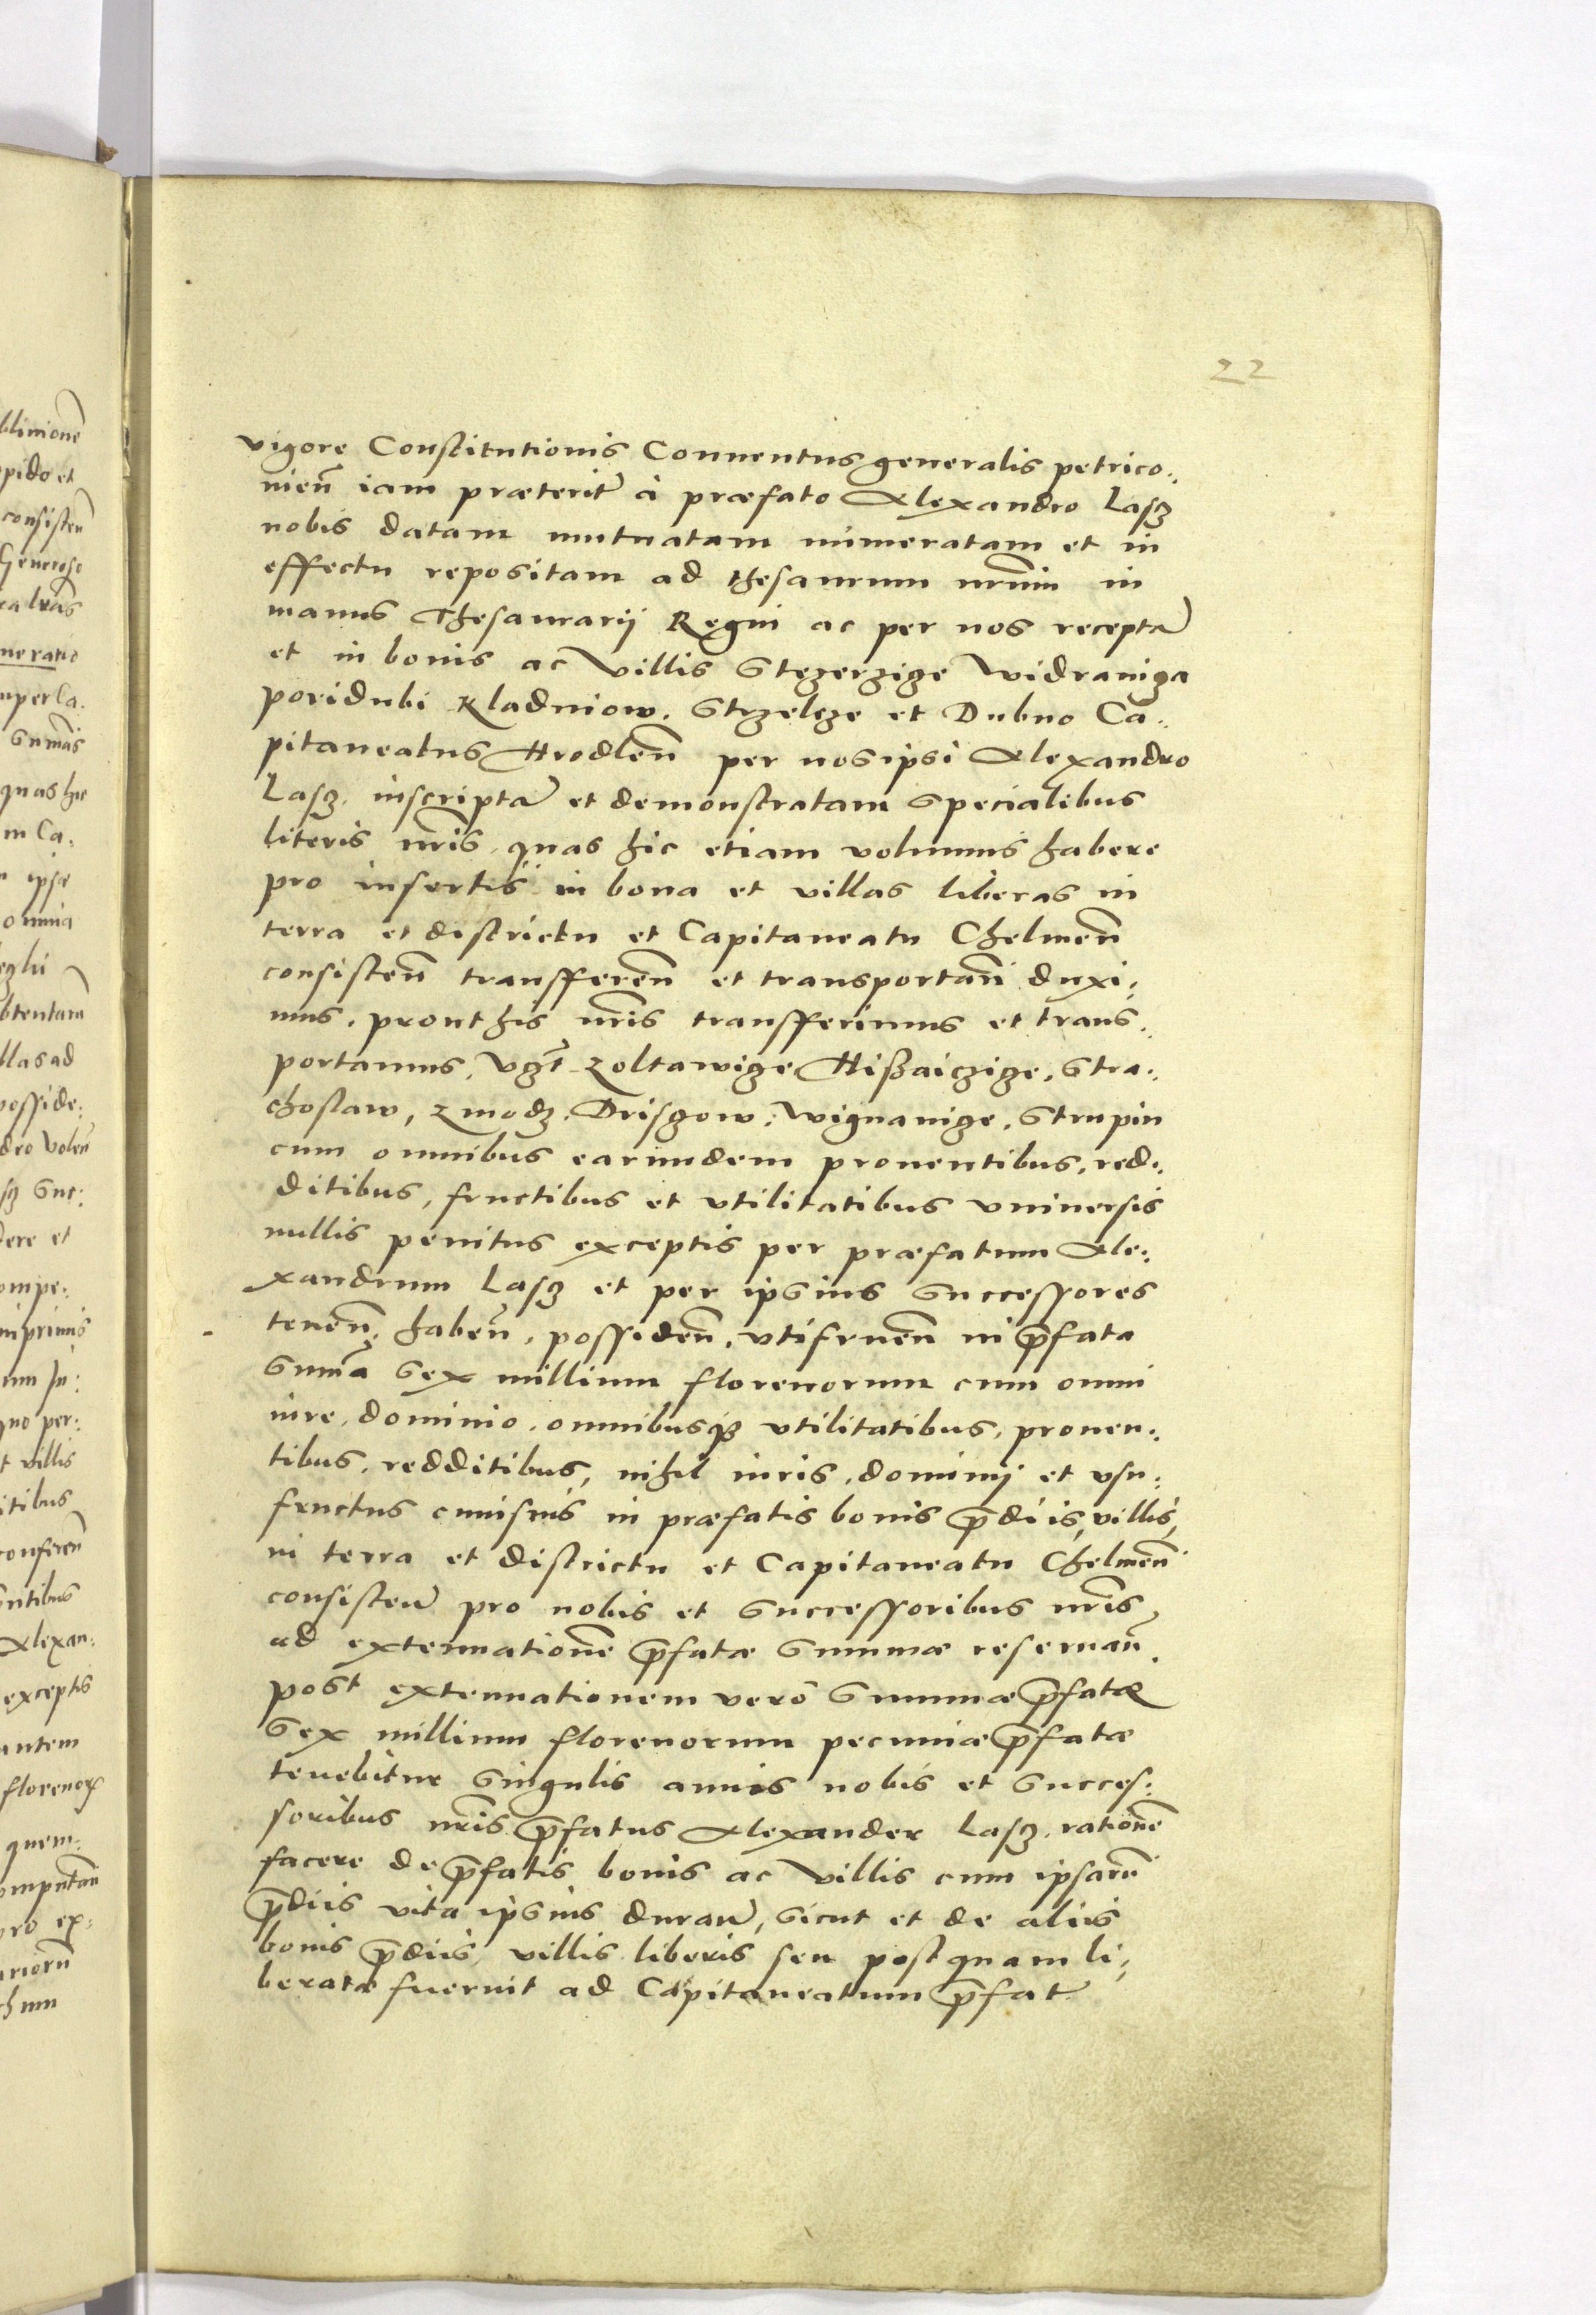 22
vigore Constitutionis Conuentus generalis petrico:
nien̄ iam præterit̃ à præfato Alexandro Lasꝫ
nobis datam mutuatam numeratam et in
effectu repositam ad thesaurum nr̄um in
manus Thesaurarij Regni ac per nos receptā
et in bonis ac villis Stezerzize Widraniza
poridubi Kladniow. Strzelze et Dubno Ca:
pitaneatus Hrodlen̄ per nos ipsi Alexandro
Lasꝫ. inscriptā et demonstratam specialibus
literis nr̄is, quas hic etiam volumus habere
pro insertis in bona et villas liberas in
terra et districtu et Capitaneatu Chelmen̄
consisten̄ transfferen̄ et transportan̄ duxi:
mus, prout his nr̄is transfferimus et trans:
portamus, vꝫt̄ Zoltawize Hißaiczize, Stra:
chostaw, Zmodꝫ. Driszow. Wignanize, Strupin
cum omnibus earundem prouentibus, red:
ditibus, fructibus et vtilitatibus vniuersis
nullis penitus exceptis per præfatum Ale:
xandrum Lasꝫ et per ipsius successores
tenen̄. haben̄, possiden̄, vtifruen̄ in p̄fata
sum̄a sex millium florenorum cum omni
iure, dominio, omnibusqꝫ vtilitatibus, prouen:
tibus, redditibus, nihil iuris, dominij et vsu:
fructus cuiusuis in præfatis bonis p̄diis, villis,
in terra et districtu et Capitaneatu Chelmen̄
consisten̄ pro nobis et successoribus nr̄is
ad extenuationē p̄fatæ summæ reseruan̄.
post extenuationem verò summæ p̄fatæ
sex millium florenorum pecuniæ p̄fatæ
tenebitur singulis annis nobis et succes:
soribus nr̄is p̄fatus Alexander Lasꝫ, rationē
facere de p̄fatis bonis ac villis cum ipsarū
p̄diis vita ipsius duran̄, sicut et de aliis
bonis p̄diis, villis liberis seu postquam li:
beratæ fuerint ad Capitaneatum p̄fat̃